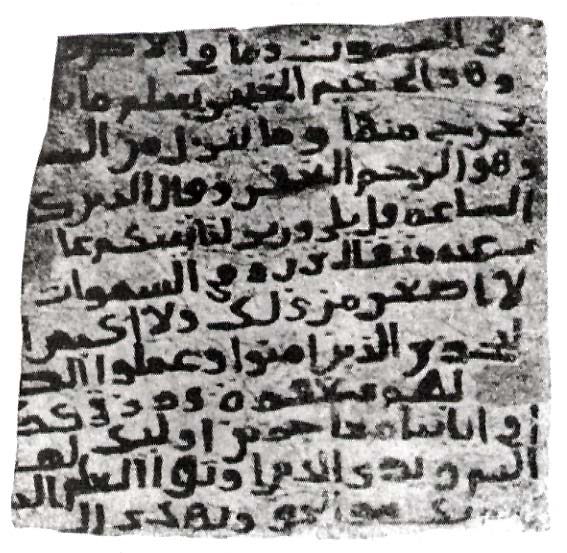 في السموت وما في الارض
وهو الحكيم الخبير يعلم ما
يخرج منها وما ينزل من السـ
وهو الرحيم الغفور وقال الذين كـ
الساعة قل بلى وربي لتاتينكم عا
عنه مثقال ذرة في السموات
لا اصغر من ذلك ولا اكبر ا
ليجزي الذين امنوا وعملوا الصـ
لهم مغفرة ورزق كـ
في اياتنا معاجزين اولئك لهـ
اليم ويرى الذين اوتوا العلم الذ
ربك هو الحق ويهدي الـ